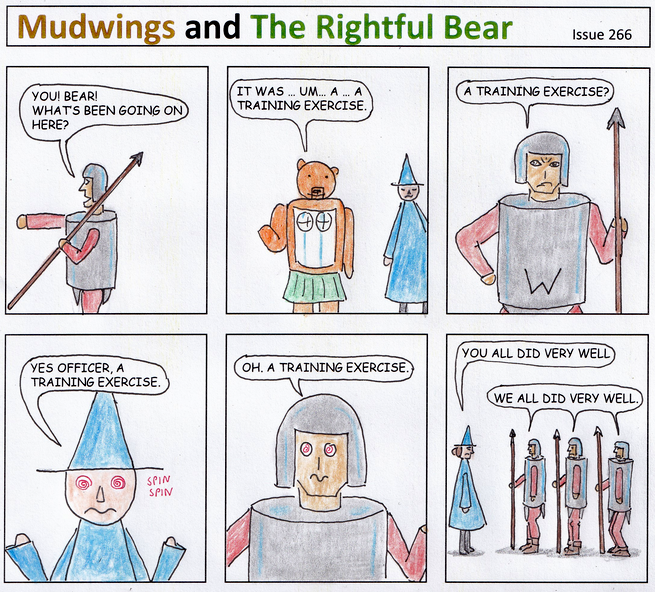 Mudwings and The Rightful Bear
Issue 266
YOU! BEAR!
WHAT'S BEEN GOING ON
HERE?
IT WAS ... UM... A ... A
TRAINING EXERCISE.
A TRAINING EXERCISE?
W
YES OFFICER, A
TRAINING EXERCISE.
SPIN
SPIN
OH. A TRAINING EXERCISE.
YOU ALL DID VERY WELL
WE ALL DID VERY WELL.